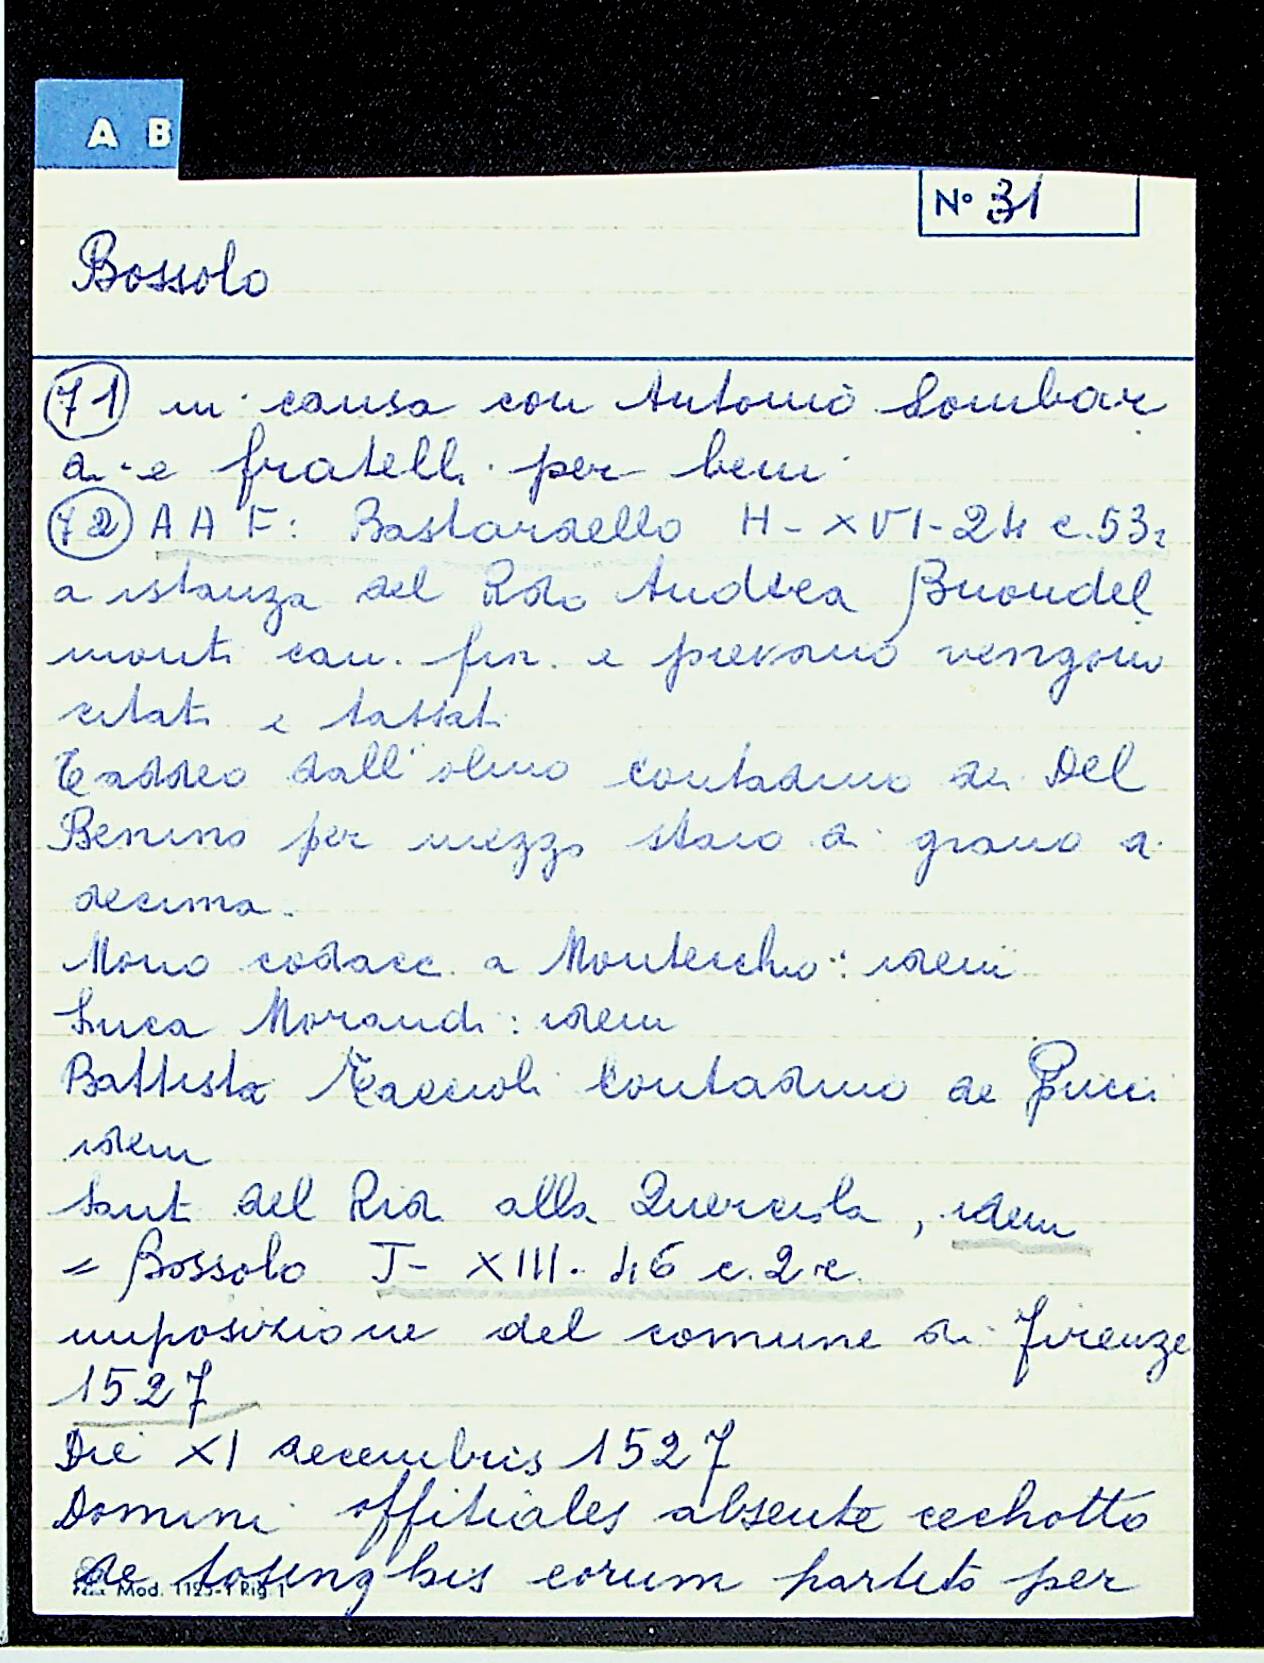 A B
N° 31
Bossolo
71 in causa con Antonio Lombar
di e fratelli per beni
72 AAF: Bastardello H-XVI-24 c.53r
a istanza del Rdo Andrea Buondel
monti can. fior. e pievano vengono
citati e tassati
Taddeo dall'olmo contadino dei Del
Benino per mezzo staio di grano di
decima.
Mono codacci a Montecchio: idem
Luca Morandi: idem
Battista Taccioli contadino dei Pucci
idem
Santi del Rid alla Querciola, idem
= Bossolo J- XIII. 46 c.2r.
imposizione del comune di Firenze
1527
Die XI decembris 1527
Domini offitiales absente cechotto
de tosinghis eorum partito per
Mod. 1125-1 Rig 1